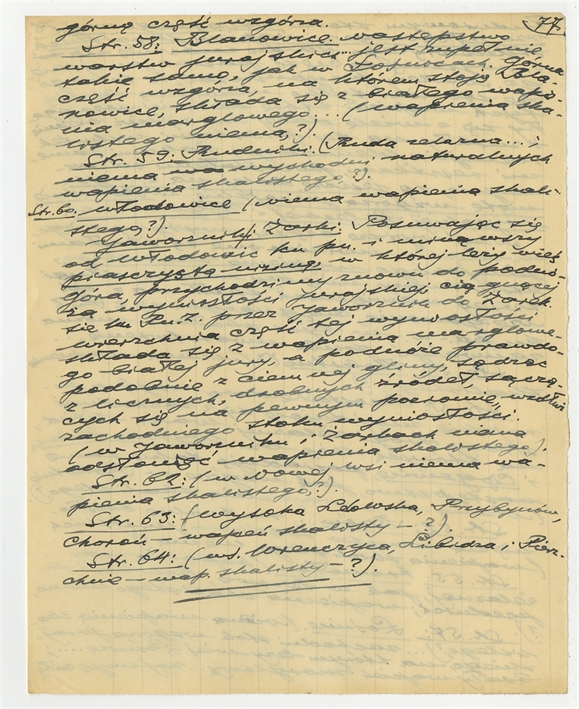 77.
górnę część wzgórza.
Str. 58: Blanowice. następstwo
warstw jurajskich... jest zupełnie
takie samo, jak w Łośnicach. Górna
część wzgórza, na którem stoją Bla-
nowice, składa się z białego wapie-
nia marglowego... (wapienia ska-
listego niema?).
Str. 59: Rudniki. (Ruda żelazna...;
niema na wychodni naturalnych
wapienia skalistego?).
Str. 60. Włodowice (niema wapienia skali-
stego?).
Jaworznik; Żarki: Posuwając się
od Włodowic ku pn. i minąwszy
piaszczystą nizinę w której leży wieś
góra, przychodzimy znowu do podnó-
ża wyniosłości jurajskiej ciągnącej
się ku Pn. Z. przez Jaworznik do Żarek
wierzchnia część tej wyniosłości
składa się z wapienia marglowe-
go białej jury, a podnóże prawdo-
podobnie z ciemnej gliny, sądząc
z licznych drobnych źródeł, sączą-
cych się na pewnym poziomie wzdłuż
zachodniego stoku wyniosłości.
(w Jaworzniku i Żarkach niema
odsłonięć wapienia skalistego).
Str. 62: (w Nowej wsi niema wa-
pienia skalistego?).
Str. 63: (Wysoka Lelowska, Przybynów,
Choroń – wapień skalisty – ?).
Str. 64: (wś. Wrenczyca, Libidza i Pierz-
chnie – wap. skalisty – ?).